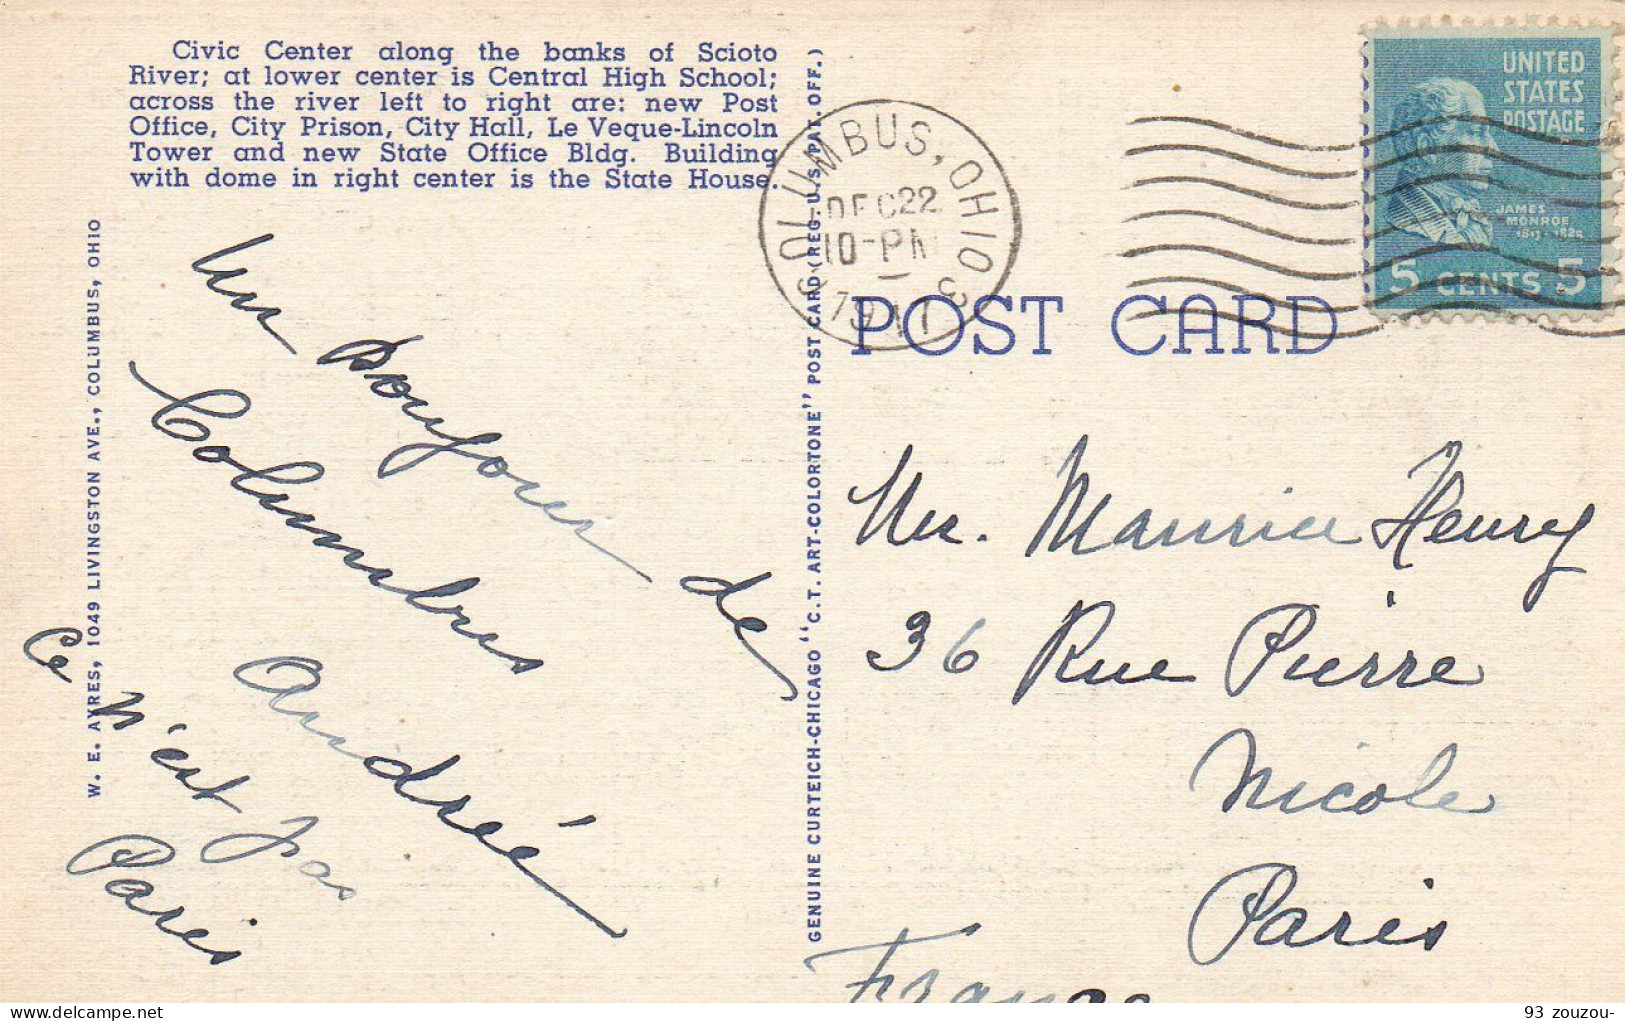 Civic Center along the banks of Scioto
River; at lower center is Central High School;
across the river left to right are: new Post
Office, City Prison, City Hall, Le Veque-Lincoln
Tower and new State Office Bldg. Building
with dome in right center is the State House.
W. E. AYRES, 1049 LIVINGSTON AVE., COLUMBUS, OHIO
Un Bonjour de
Columbus
André
Ce n'est pas
Paris
GENUINE CURTEICH-CHICAGO "C.T. ART-COLORTONE" POST CARD (REG. U.S. PAT. OFF.)
COLUMBUS, OHIO 3
DEC 22
10-PM
1947
UNITED
STATES
POSTAGE
JAMES
MONROE
5 CENTS 5
POST CARD
Mr. Maurice Henry
36 Rue Pierre
Nicole
Paris
France
93 zouzou-